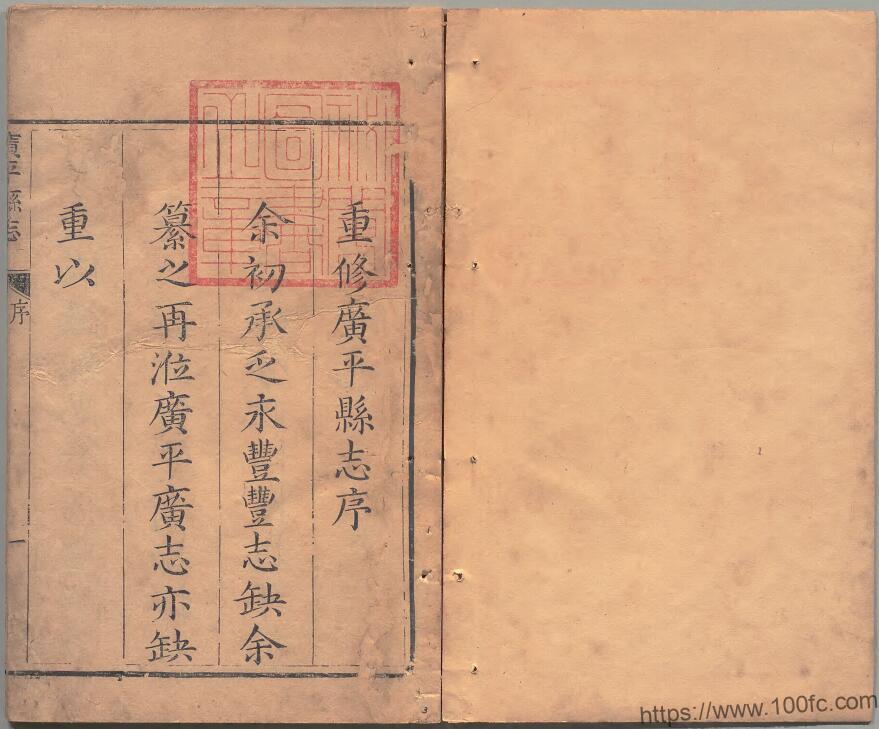 重修廣平縣志序
余初承乏永豐豐志缺余
纂之再涖廣平廣志亦缺
重以
廣平縣志
序
一
3
https://www.100fc.com